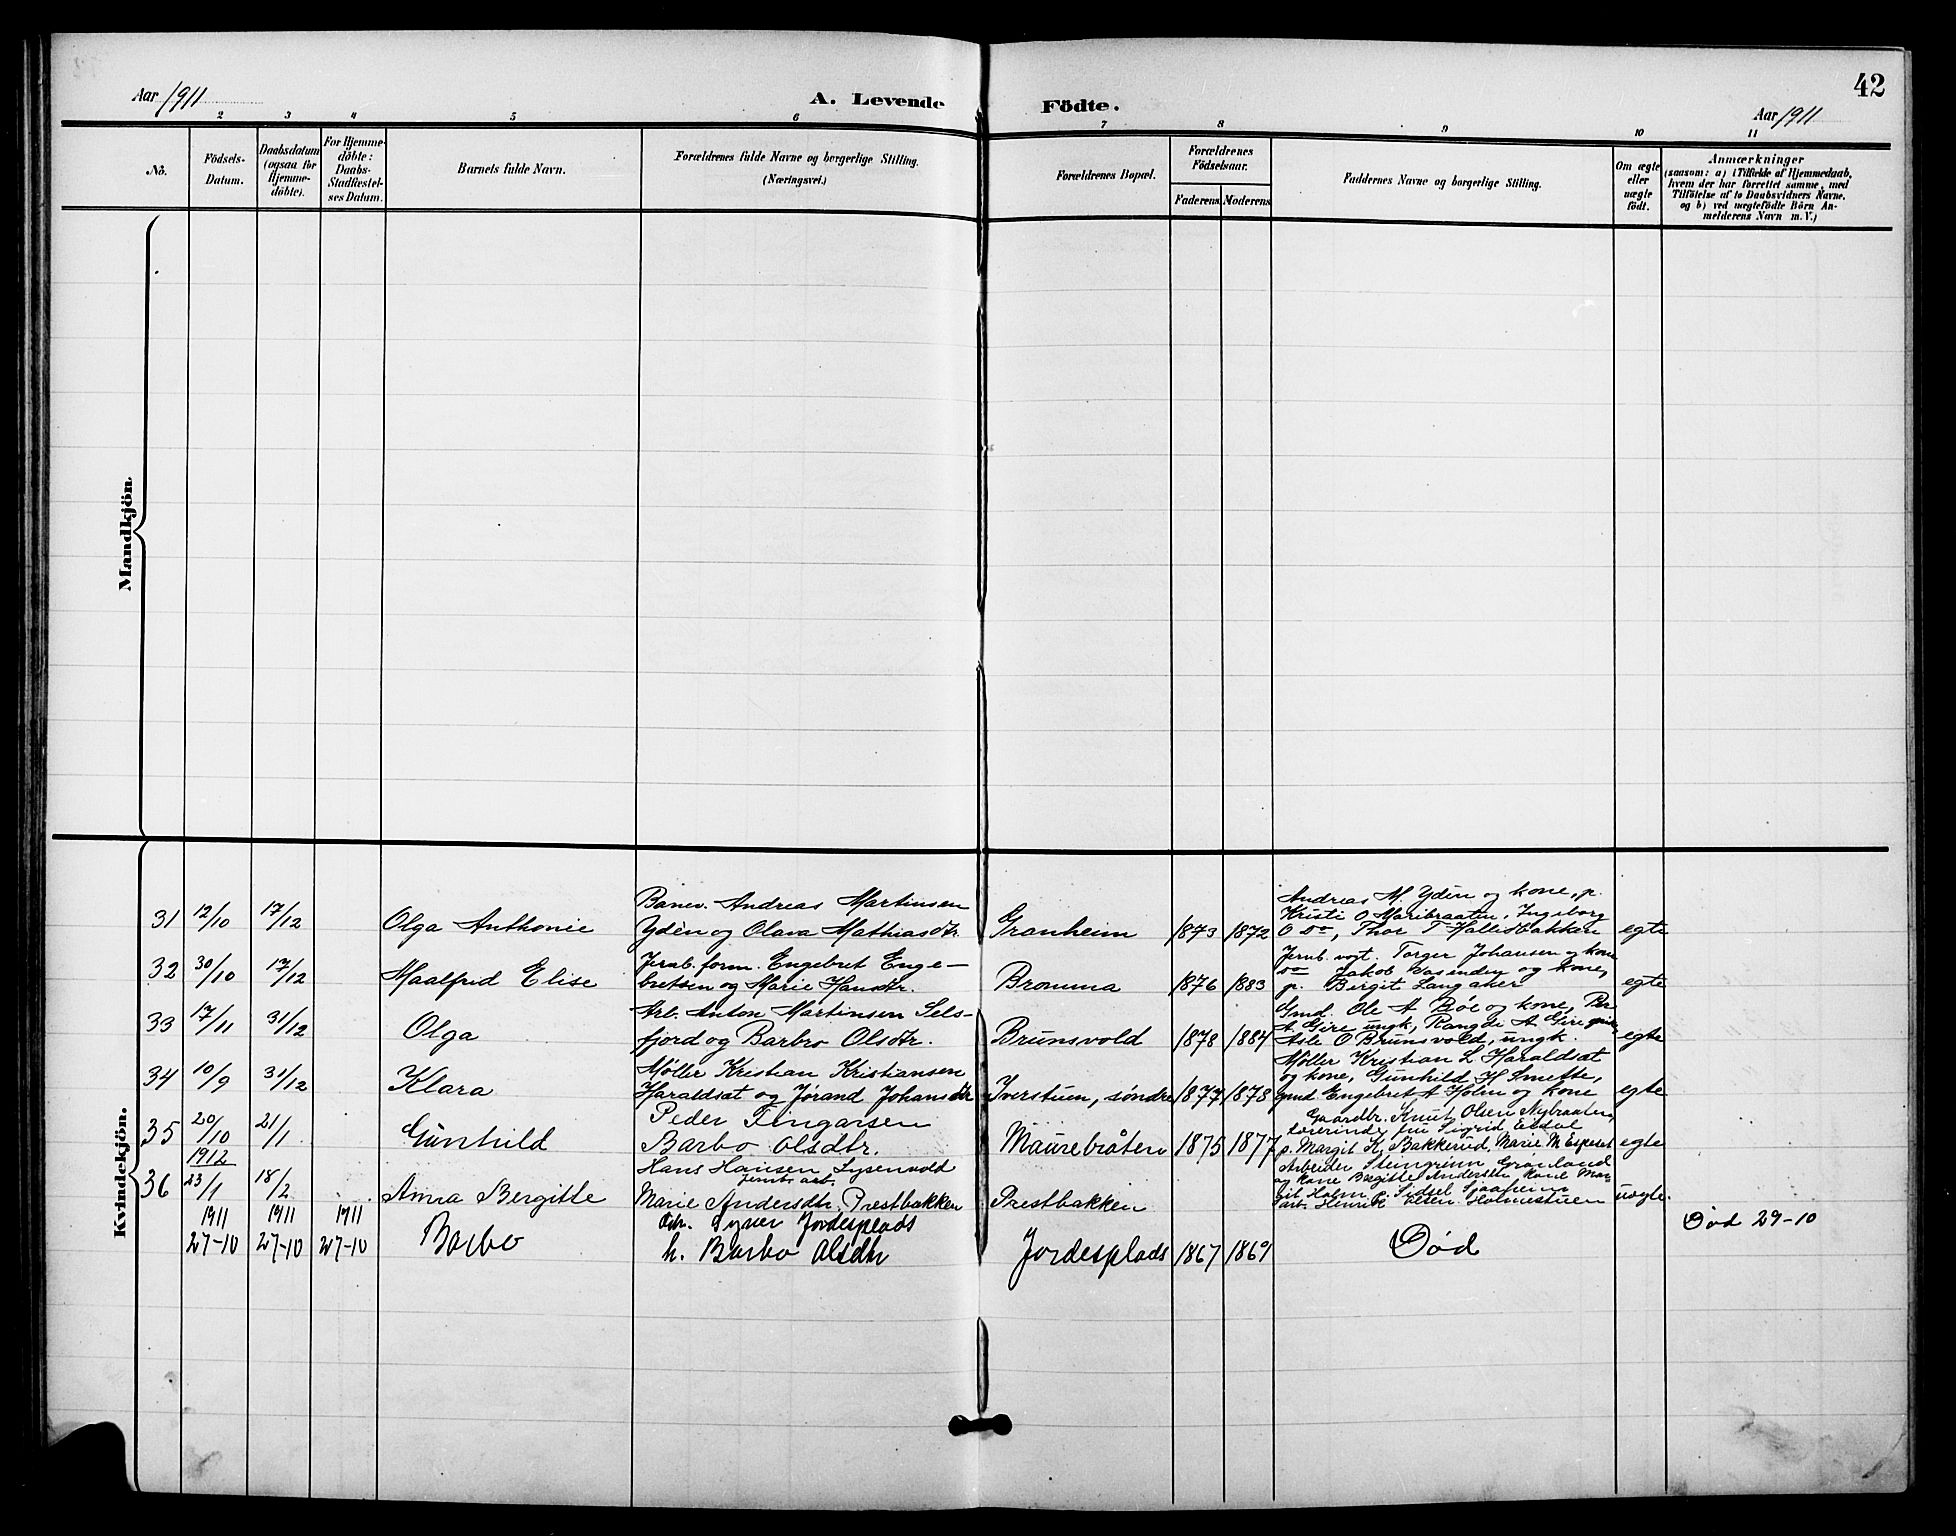 42
Aar 1911
A. Levende Födte.
Aar 1911
2 3 4 5 6 7 8 9 10 11
No.
Födsels-Datum.
Daabsdatum (ogsaa for Hjemme-döbte).
For Hjemme-döbte: Daabs-Stadfæstel-ses Datum.
Barnets fulde Navn.
Forældrenes fulde Navne og borgerlige Stilling. (Næringsvei.)
Forældrenes Bopæl.
Forældrenes Födselsaar.
Faderens Moderens
Faddernes Navne og borgerlige Stilling.
Om ægte eller uægte födt.
Anmærkninger
(saasom: a) i Tilfælde af Hjemmedaab,
hvem der har forrettet samme, med
Tilföielse af to Daabsvidners Navne.
og b) ved uægtefödte Börn An-
melderens Navn m. V.)
Mandkjön.
Kvindekjön.
31 12/10 17/12 Olga Anthonie
Banev. Andreas Martinsen
Ydèn og Olava Mathiasdtr.
Granheim 1873 1872
Andreas M. Ydèn og kone, p.
Kristi O Maribraaten, Ingeborg
O do, Thor T Hallisbakken
egte
32 30/10 17/12 Maalfrid Elise
Jernb. form. Engebret Enge-
bretsen og Marie Hansdtr.
Bromma 1876 1883
Jernb. vogt. Torger Johansen og kone
do Jakob og kone,
p. Birgit Langaker
egte
33 17/11 31/12 Olga
Arb. Anton Martinsen Sels-
fjord og Barbro Olsdtr.
Brunsvold 1878 1884
Gmd. Ole A Bøe og kone, Per
A Gire ungk, Rangdi A Gire pike,
Asle O Brunsvold, ungk.
egte
34 10/9 31/12 Klara
Møller Kristian Kristiansen
Haraldsat og Jørand Johansdtr
Iverstuen, søndre 1877 1878
Møller Kristian L Haraldsat
og kone, Gunhild H Smette,
gmd Engebret A Holm og kone
egte
35 20/10 21/1 Gunhild
Peder Fingarsen
Barbo Olsdtr.
Maurebråten 1875 1877
Gaardbr. Knut Olsen Nybraaten,
lærerinde fru Sigrid Eidsol
p. Margit K. Bakkerud, Marie M Espeset
egte
1912
36 23/1 18/2 Anna Bergitte
Hans Hansen Lysenvold
jernb. arb.
Marie Andersdtr. Prestbakken
Prestbakken
Arbeider Steingrim Grønland
og kone Birgitte Andersen Kone Mar-
git Holm p. Sidsel
arb. Henrik Olsen Holmestuen
uegte.
1911 1911 1911
27-10 27-10 27-10 Barbo
Arb. Syver Jordesplads
h. Barbo Olsdtr
Jordesplads 1867 1869 Død
Død 29-10